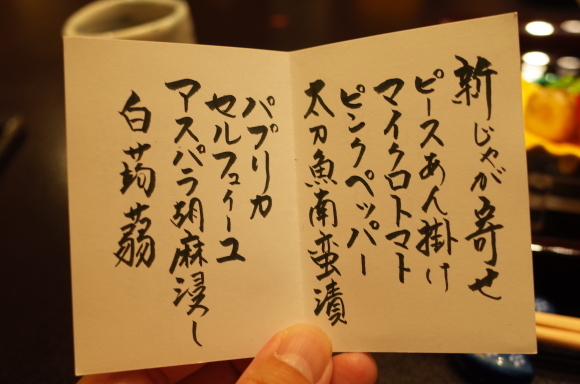 新じゃが寄せ
ピースあん掛け
マイクロトマト
ピンクペッパー
太刀魚南蛮漬
パプリカ
セルフィーユ
アスパラ胡麻浸し
白蒟蒻